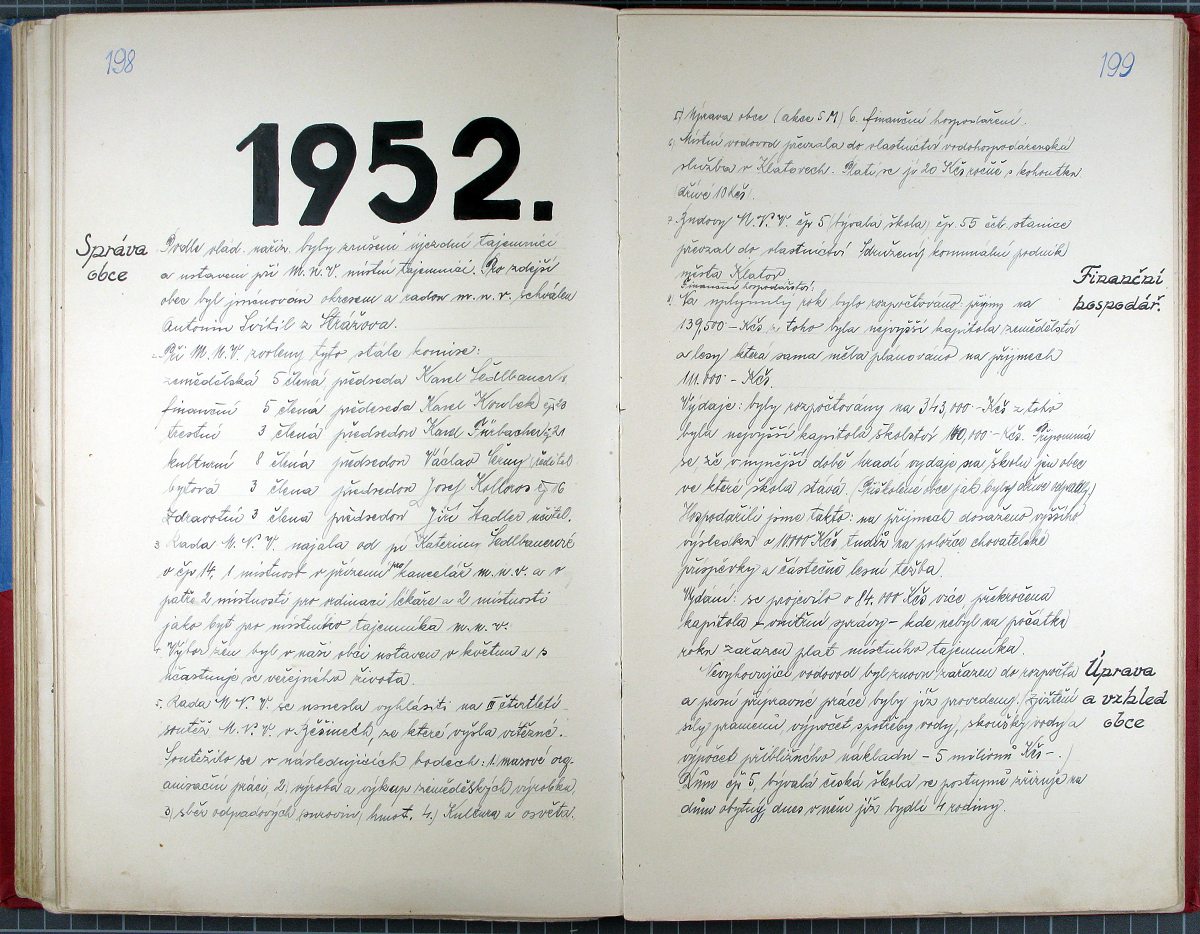 198
1952.
Správa
obce
Podle vlád. naříz. byly zrušeni újezdní tajemníci
a ustaveni při M.N.V. místní tajemníci. Pro zdejší
obec byl jmenován okresem a radou m.n.v. schválen
Antonín Svítil z Strážova.
Při M.N.V. zvoleny tyto stálé komise:
zemědělská 5 člená předseda Karel Sedlbauer
finanční 5 člená předseda Karel
trestní 3 člená předsedou Karel Fürbacher
kulturní 8 člená předsedou Václav Černý ředitel
bytová 3 člena předsedou Josef Kolloros čp 16
Zdravotní 3 členа předsedou Jiří Hadler učitel.
3. Rada M.N.V. najala od pí Kateriny Sedlbauerové
v čp 14, 1 místnost v přízemí pro kancelář m.n.v. a v
patře 2 místnosti pro ordinaci lékaře a 2 místnosti
jako byt pro místního tajemníka m.n.v.
4. Výbor žen byl v naší obci ustaven v květnu a
účastňuje se veřejného života.
5. Rada M.N.V. se usnesla vyhlásiti na III čtvrtletí
soutěž M.N.V. v Běšinech, ze které vyšla vítězně.
Soutěžilo se v následujících bodech: 1. masové org.
anisační práci, 2) výroba a výkup zemědělských výrobků,
3) sběr odpadových surovin) hmot. 4.) Kultura a osvěta.
199
5) Úprava obce (akce 5M) 6. finanční hospodaření.
6) Místní vodovod převzala do vlastnictví vodohospodárenská
služba v Klatovech. Platí se jí 20 Kčs ročně s kohoutku
(dříve 10 Kčs).
7. Budovy M.N.V. čp 5 (bývalá škola) čp. 55 čet. stanice
převzal do vlastnictví Sdružený komunální podnik
města Klatov
Finanční hospodářství.
Finanční
hospodář.
Na uplynulý rok bylo rozpočtováno: příjmy na
139,500 – Kčs z toho byla nejvyšší kapitola zemědělství
a lesy která sama měla plánováno na příjmech
111.000 – Kčs.
Výdaje: byly rozpočtovány na 343,000 – Kčs z toho
byla nejvyšší kapitola školství 100,000 – Kčs. Připomíná
se že v nynější době hradí výdaje na školu jen obec
ve které škola stává. (Přiškolené obce jak bylo dříve neplatí.)
Hospodařili jsme takto: na příjmech dosaženo vyššího
výsledku o 11000 Kčs tudíž na položce chovatelské
příspěvky a částečně lesní těžba.
Vydání: se projevilo o 84.000 Kčs více překročena
kapitola – vnitřní správy – kde nebyl na počátku
roku zařazen plat místního tajemníka.
Úprava
a vzhled
obce
Nevyhovující vodovod byl znovu zařazen do rozpočtu
a první přípravné práce byly již provedeny. (zjištění
síly pramenů výpočet spotřeby vody, skoušky vody a
výpočet přibližného nákladu – 5 milionů Kčs –.)
Dům čp 5, bývalá česká škola se postupně zřizuje na
dům obytný, dnes v něm již bydlí 4 rodiny.